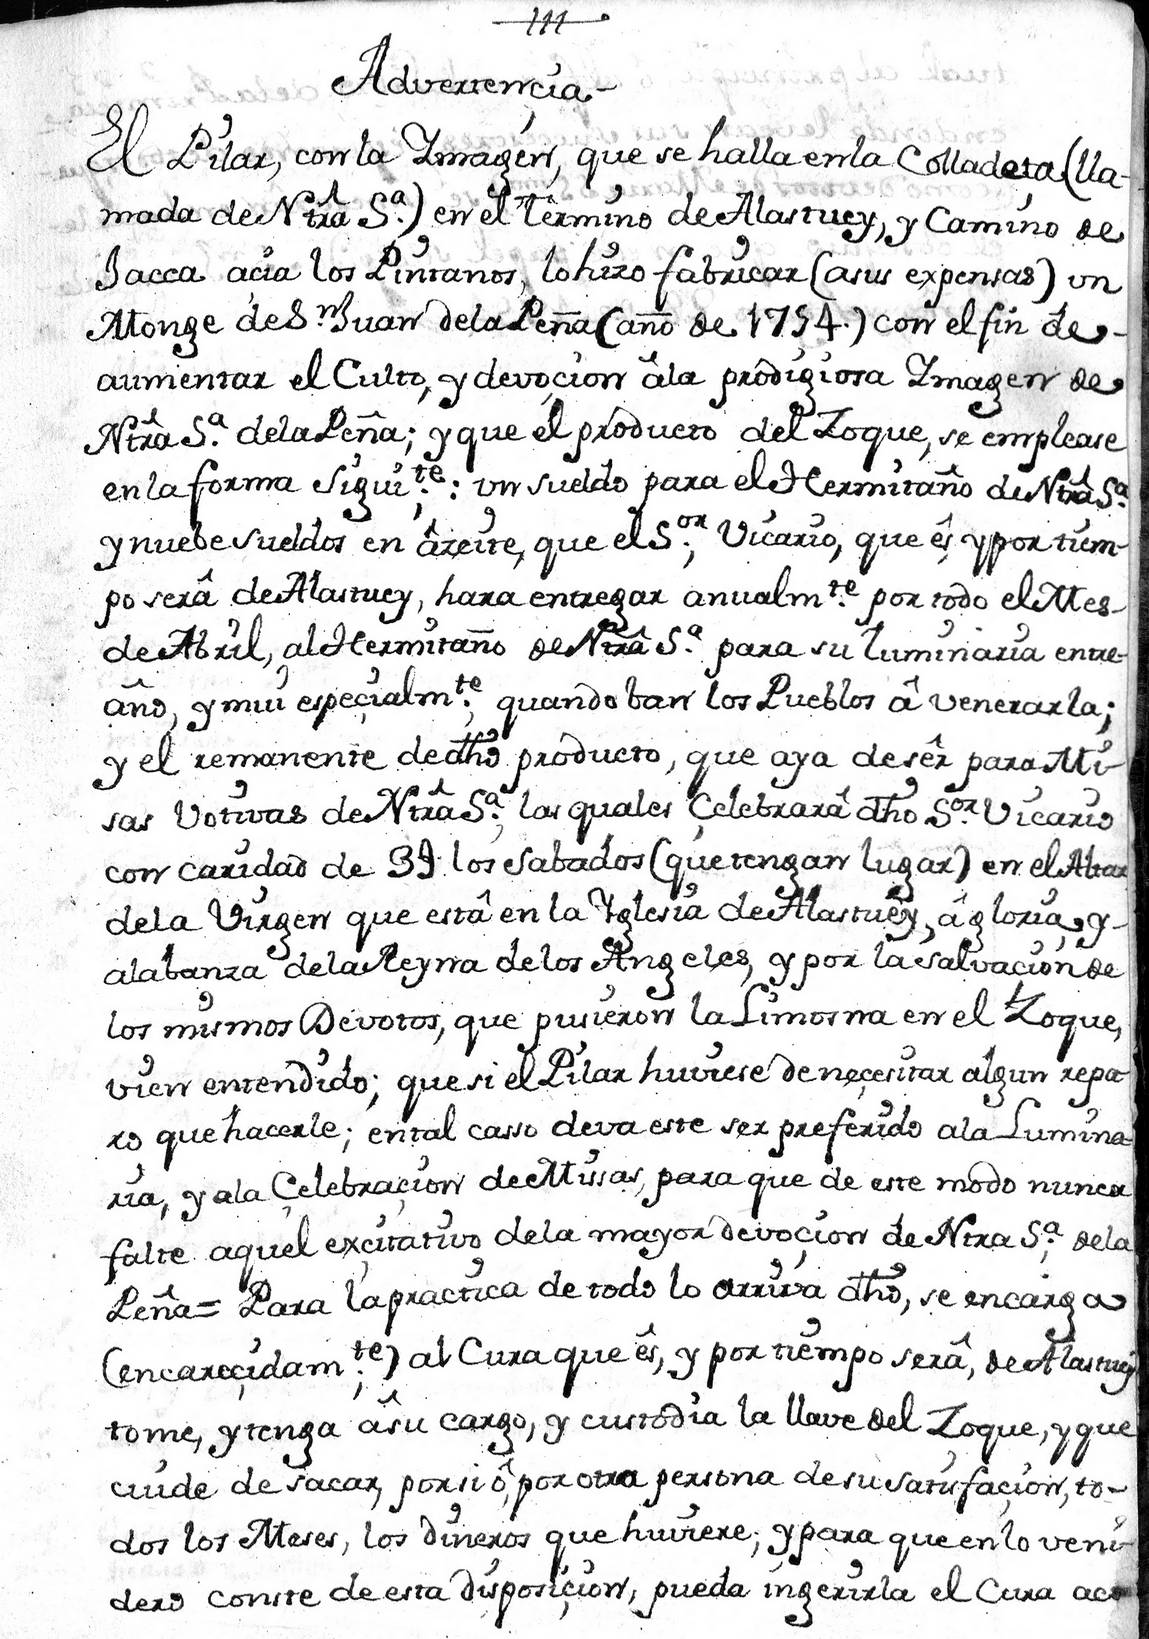 111
Advertencia
El Pilar, con la Ymagen, que se halla en la Colladeta (lla-
mada de Ntrâ Sª.) en el termino de Alastuey, y Camino de
Jacca acia los Pintanos, lo hizo fabricar (a sus expensas) un
Monge de S.n Juan de la Peña (año de 1754.) con el fin de
aumentar el Culto, y devoçion â la prodigiosa Ymagen de
Ntrâ Sª. de la Peña; y que el producto del Zoque, se emplease
en la forma sigui.te: un sueldo para el Hermitaño de Ntrâ Sª
y nuebe sueldos en âzeite, que el S.or Vicario, que ês y por tiem-
po serâ de Alastuey, hara entregar anualm.te por todo el Mes
de Abril, al Hermitaño de Ntrâ Sª. para su luminaria entre
año, y mui espeçialm.te quando ban los Pueblos â venerarla;
y el remanente de dho producto, que aya de sêr para Mi-
sas Votivas de Ntrâ Sª. las quales Çelebrarâ dho S.or Vicario
con caridad de 3 los Sabados (que tengan lugar) en el Altar
de la Virgen que estâ en la Yglesia de Alastuey, â gloria, y
alabanza de la Reyna de los Angeles, y por la salvacion de
los mismos Devotos, que pusieron la Limosna en el Zoque,
vien entendido; que si el Pilar huviese de neçesitar algun repa-
ro que hacerle; en tal casso deva este ser preferido a la Lumina-
ria, y a la Çelebraçion de Missas, para que de este modo nunca
falte aquel exçitativo de la mayor devoçion de Ntra Sª. de la
Peña = Para la practica de todo lo arriva dho, se encarga
(encareçidam.te) al Cura que ês, y por tiempo serâ, de Alastuey
tome, y tenga â su cargo, y custodia la llave del Zoque, y que
cuide de sacar, por si ô por otra persona de su satisfaçion, to-
dos los Meses, los dineros que huviere; y para que en lo veni-
dero conste de esta disposiçion, pueda ingerirla el Cura aco